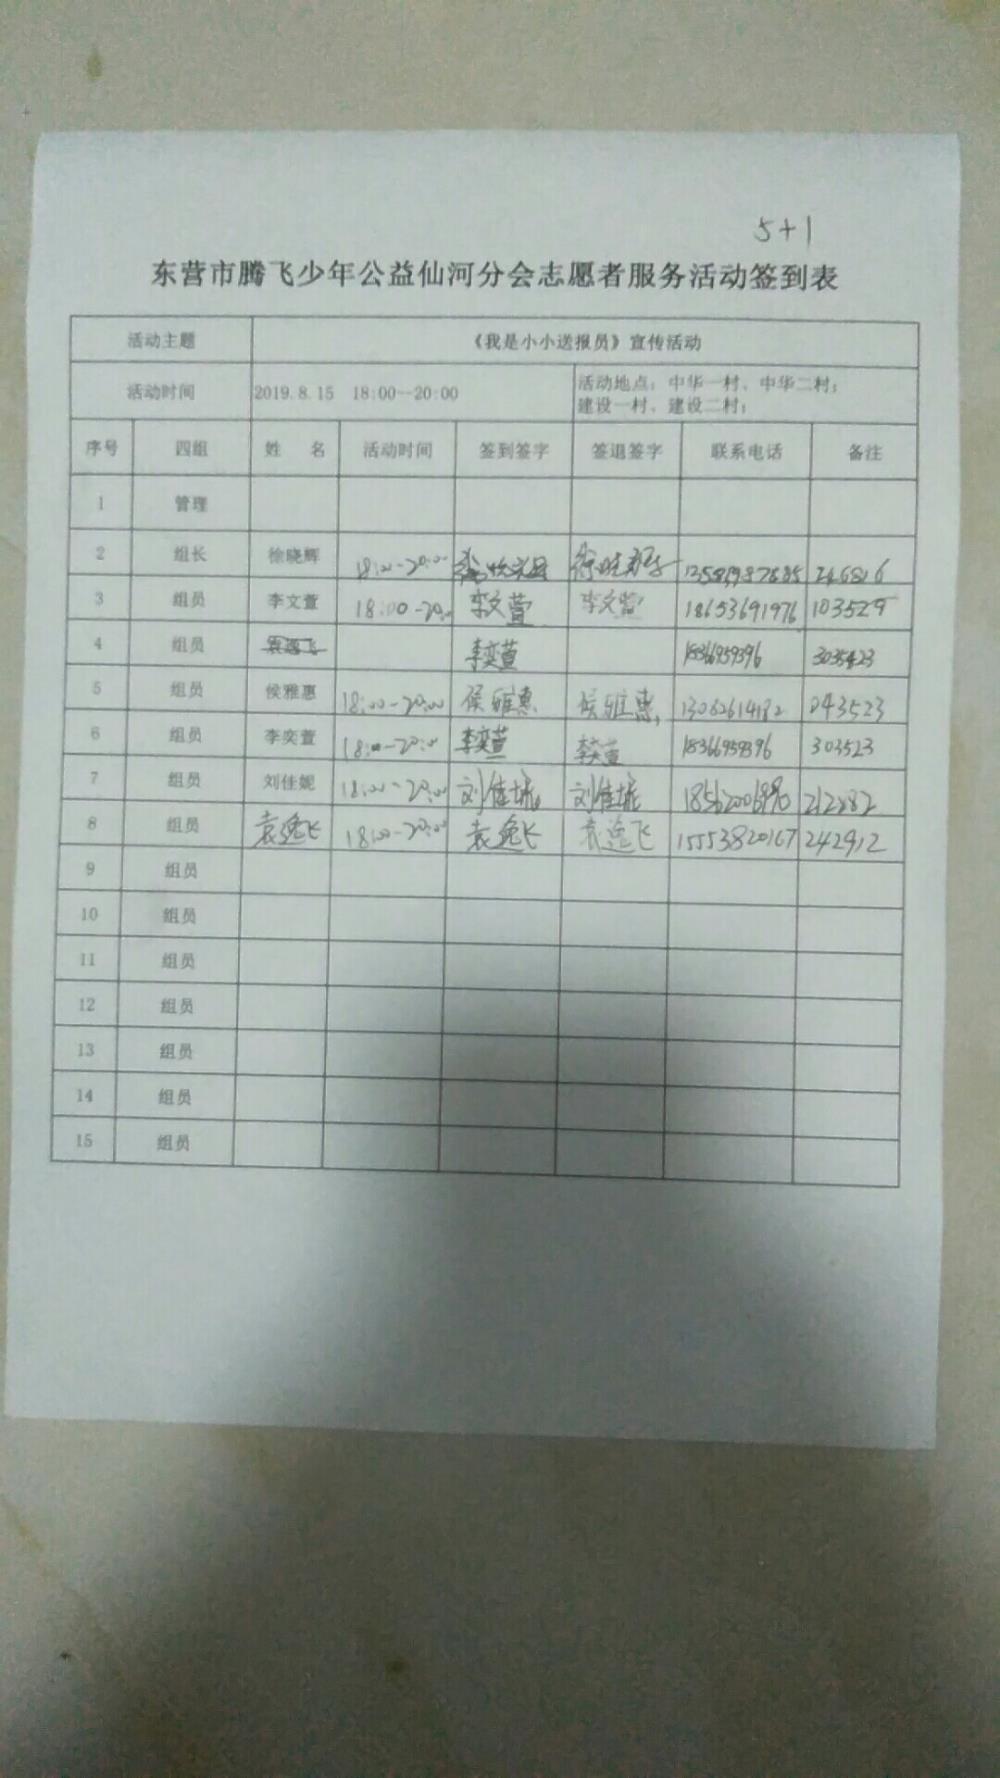 5+1
东营市腾飞少年公益仙河分会志愿者服务活动签到表
活动主题 《我是小小送报员》宣传活动
活动时间 2019.8.15 18:00--20:00 活动地点：中华一村、中华二村；
建设一村、建设二村；
序号 四组 姓 名 活动时间 签到签字 签退签字 联系电话 备注
1 管理
2 组长 徐晓辉 18:00-20:00 246816
3 组员 李文萱 18:00-20:00 李文萱 李文萱 18653691976 103529
4 组员 李奕萱 18366959396 303523
5 组员 侯雅惠 18:00-20:00 侯雅惠 侯雅惠 13062614182 043523
6 组员 李奕萱 18:00-20:00 李奕萱 李奕萱 18366959396 303523
7 组员 刘佳妮 18:00-20:00 刘佳妮 刘佳妮 212282
8 组员 袁逸飞 18:00-20:00 袁逸飞 袁逸飞 15553820167 242912
9 组员
10 组员
11 组员
12 组员
13 组员
14 组员
15 组员